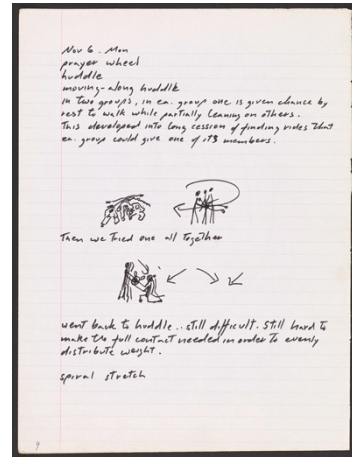 Nov 6. Mon
prayer wheel
huddle
moving-along huddle
in two groups, in ea. group one is given chance by
rest to walk while partially leaning on others.
This developed into long session of finding rides that
ea. group could give one of its members.
Then we tried one all together
went back to huddle.. still difficult. Still hard to
make the full contact needed in order to evenly
distribute weight.
spiral stretch
9